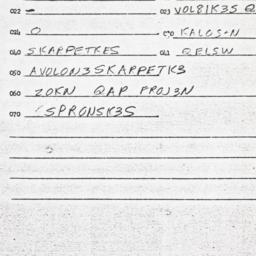 022 - 023 VOL8IK3S Q
024 O 030 KALOS-N
040 SKARPETKES 041 QELSW
050 AVOLON3SKARPETK3
060 ZOKN QAP PROJ3N
070 SPRONSK3S